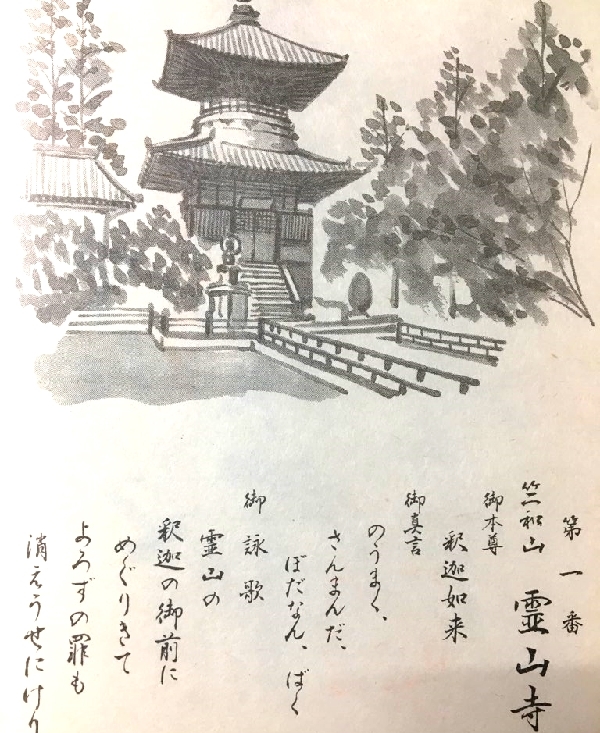 第一番
竺和山 霊山寺
御本尊
釈迦如来
御真言
のうまく、
さんまんだ、
ぼだなん、ばく
御詠歌
霊山の
釈迦の御前に
めぐりきて
よろずの罪も
消えうせにけり